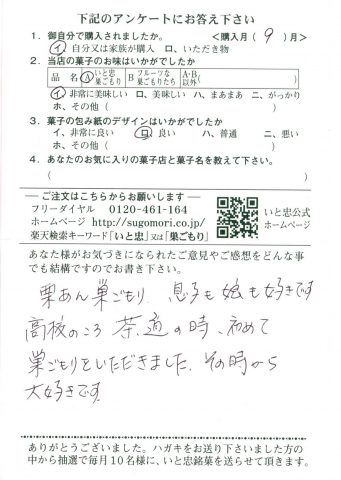 下記のアンケートにお答え下さい
1．御自分で購入されましたか。　＜購入月（ 9 ）月＞
イ、自分又は家族が購入　ロ、いただき物
2．当店の菓子のお味はいかがでしたか
品　名　A いと忠巣ごもり　B フルーツな巣ごもりたち　A・B以外（　　　）
イ、非常に美味しい　ロ、美味しい　ハ、まあまあ　ニ、がっかり
ホ、その他（　　　）
3．菓子の包み紙のデザインはいかがでしたか
イ、非常に良い　ロ、良い　ハ、普通　ニ、悪い
ホ、その他（　　　）
4．あなたのお気に入りの菓子店と菓子名を教えて下さい。
（　　　）
―ご注文はこちらからお願いします―
フリーダイヤル　0120-461-164
ホームページ http://sugomori.co.jp/
楽天検索キーワード「いと忠」又は「巣ごもり」
いと忠公式
ホームページ
あなた様がお気づきになられたご意見やご感想をどんな事
でも結構ですのでお書き下さい。
栗あん巣ごもり、息子も娘も好きです
高校のころ 茶道の時、初めて
巣ごもりをいただきました。その時から
大好きです。
ありがとうございました。ハガキをお送り下さいました方の
中から抽選で毎月10名様に、いと忠銘菓を送らせて頂きます。